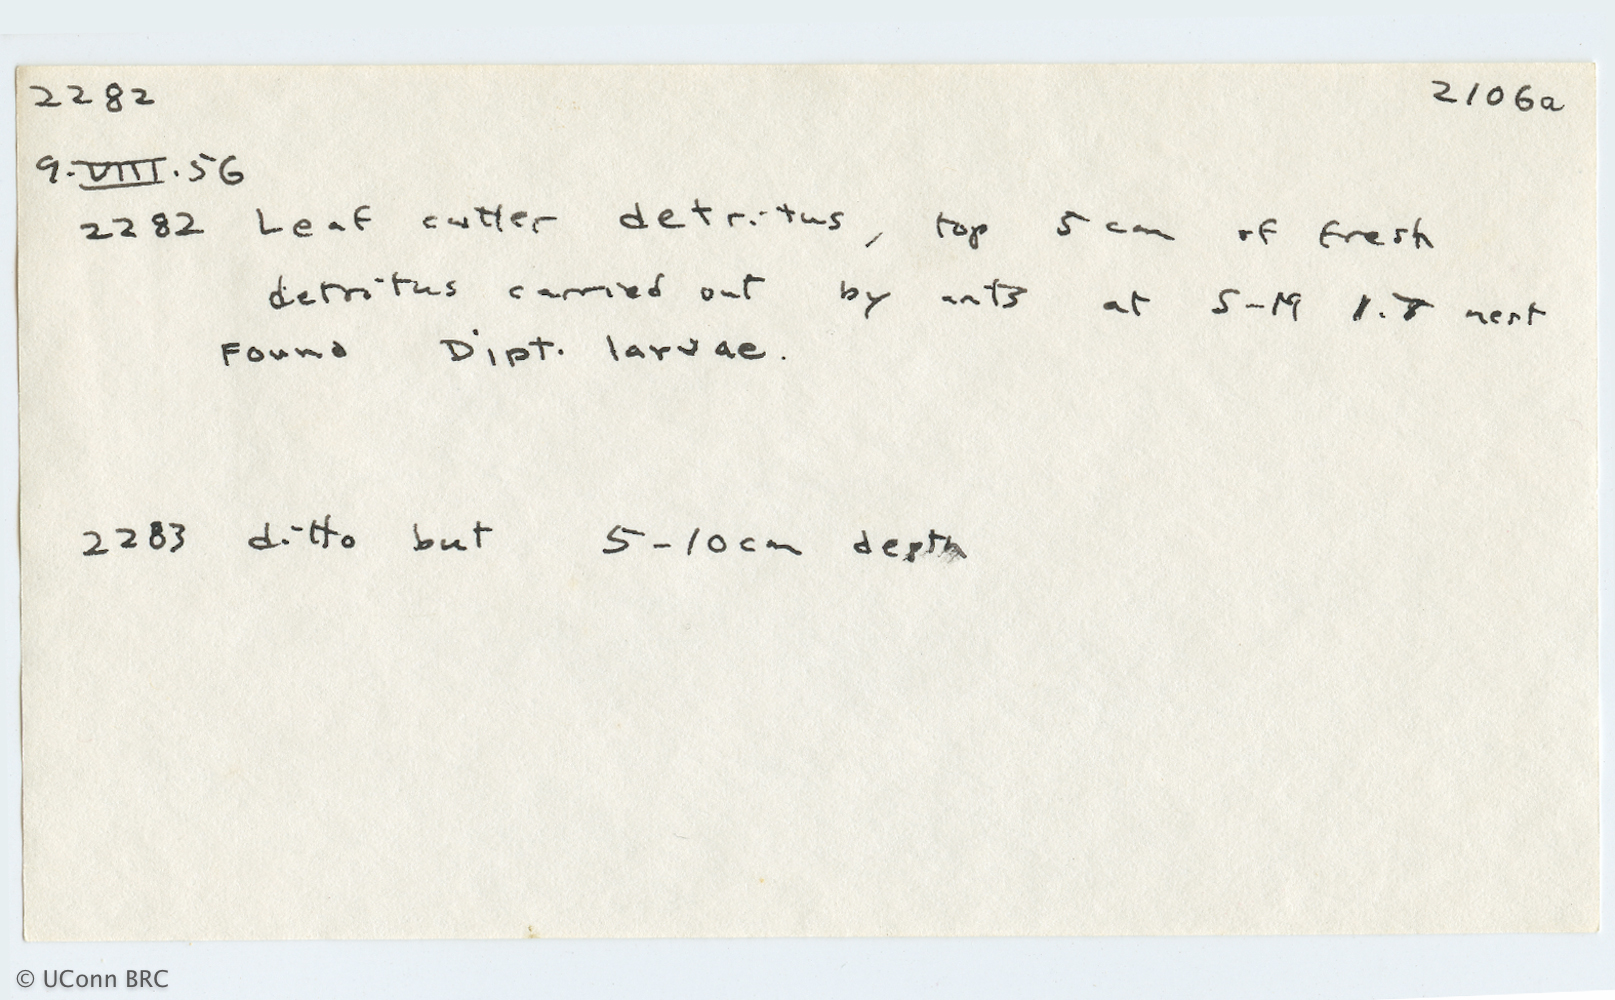 2282 2106a
9.VIII.56
2282 Leaf cutter detritus, top 5 cm of fresh
detritus carried out by ants at S-19 1.8 nest
Found Dipt. larvae.
2283 ditto but 5-10cm depth
© UConn BRC